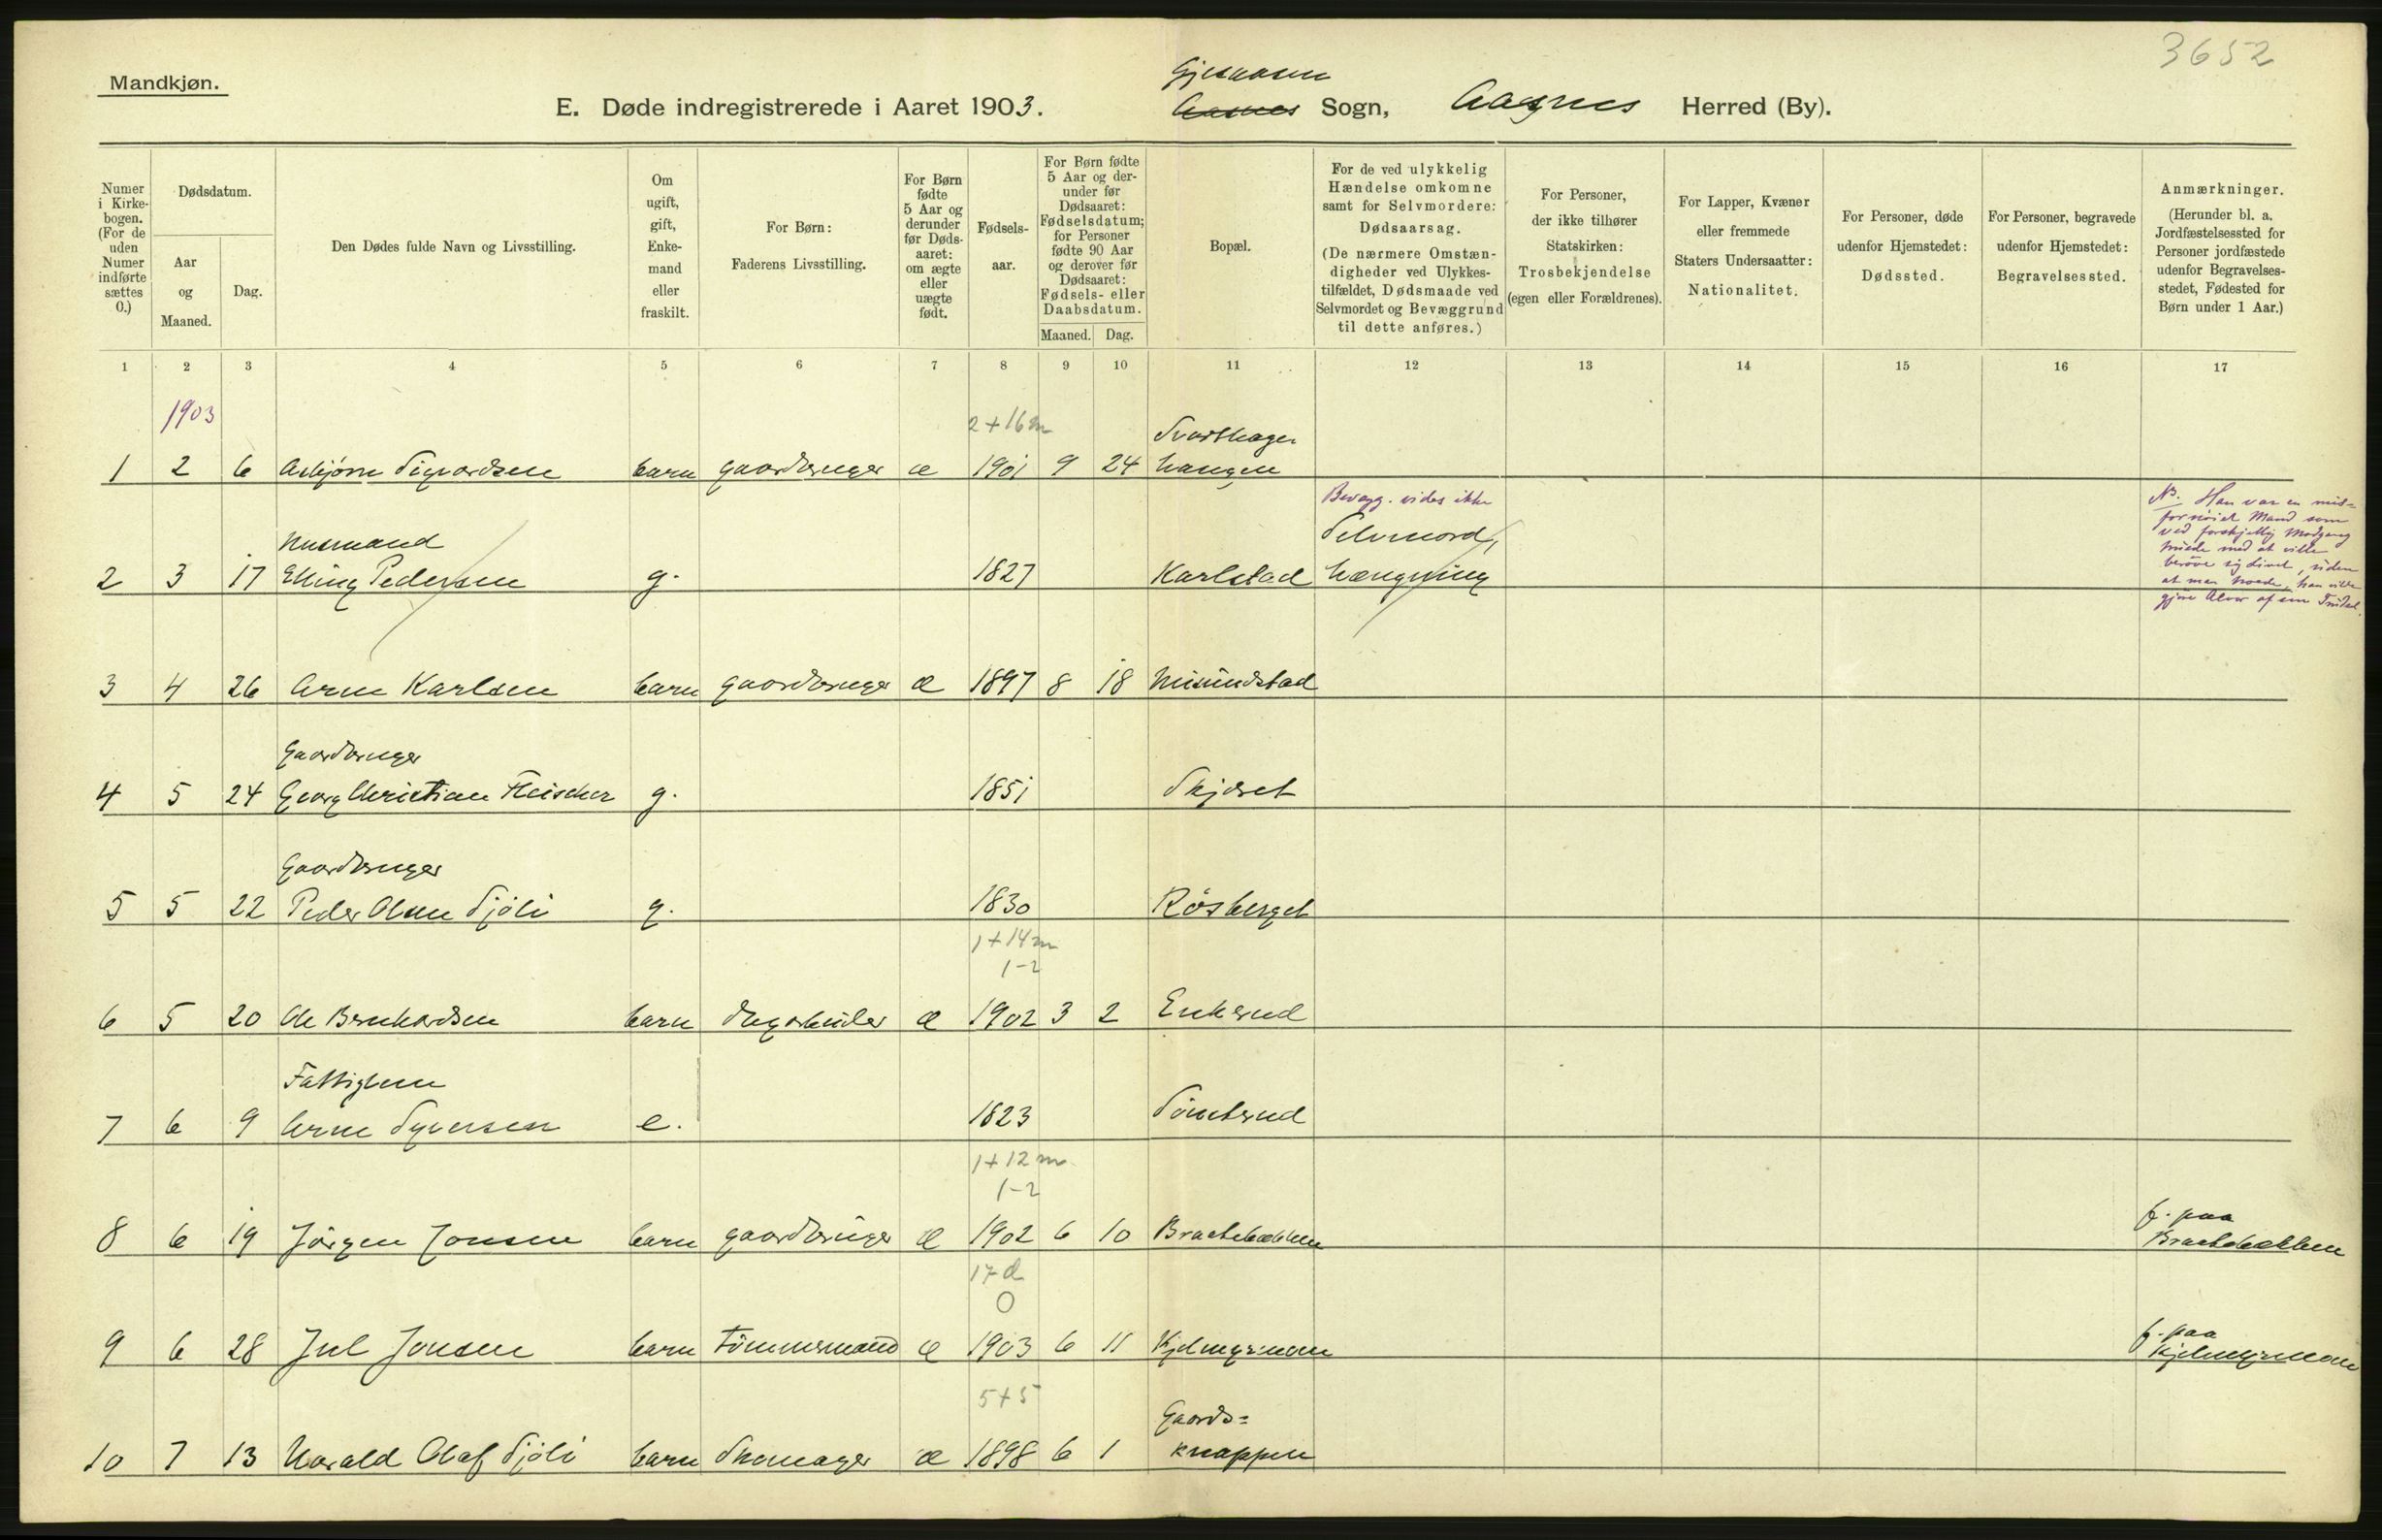 3652
Mandkjøn.
E. Døde indregistrerede i Aaret 1903. Gjesaasen Aasnes Sogn, Aasnes Herred (By).
Numer i Kirkebogen. (For de uden Numer indførte sættes 0.)
Dødsdatum.
Aar og Maaned.
Dag.
Den Dødes fulde Navn og Livsstilling.
Om ugift, gift, Enkemand eller fraskilt.
For Børn: Faderens Livsstilling.
For Børn fødte 5 Aar og derunder før Dødsaaret: om ægte eller uægte født.
Fødselsaar.
For Børn fødte 5 Aar og derunder før Dødsaaret: Fødselsdatum; for Personer fødte 90 Aar og derover før Dødsaaret: Fødsels- eller Daabsdatum.
Maaned. Dag.
Bopæl.
For de ved ulykkelig Hændelse omkomne samt for Selvmordere: Dødsaarsag. (De nærmere Omstændigheder ved Ulykkestilfældet, Dødsmaade ved Selvmordet og Bevæggrund til dette anføres.)
For Personer, der ikke tilhører Statskirken: Trosbekjendelse (egen eller Forældrenes).
For Lapper, Kvæner eller fremmede Staters Undersaatter: Nationalitet.
For Personer, døde udenfor Hjemstedet: Dødssted.
For Personer, begravede udenfor Hjemstedet: Begravelsessted.
Anmærkninger. (Herunder bl. a. Jordfæstelsessted for Personer jordfæstede udenfor Begravelsesstedet, Fødested for Børn under 1 Aar.)
1 2 3 4 5 6 7 8 9 10 11 12 13 14 15 16 17
1903
2+16m
1 2 6 Asbjørn Sigvardsen barn gaardbruger æ 1901 9 24 Svarthagen haugen
Bevægg. vides ikke
Husmand Selvmord,
2 3 17 Elling Pedersen g. 1827 Karlstad hængning
NB. Han var en misfornöiet Mand som ved forskjellig Modgang truede med at ville beröve sig Livet, uden at man troede, han vilde gjöre Alvor af sin Trudsel.
3 4 26 Arne Karlsen barn gaardbruger æ 1897 8 18 Misundstad
Gaardbruger
4 5 24 Georg Christian Fleischer g. 1851 Skjæret
Gaardbruger
5 5 22 Peder Olsen Sjöli g. 1830 Rösberget
1+14m
1-2
6 5 20 Ole Bernhardsen barn dagarbeider æ 1902 3 2 Enkerud
Fattiglem
7 6 9 Arne Syversen e. 1823 Sönsterud
1+12m
1-2
8 6 19 Jörgen Jonsen barn gaardbruger æ 1902 6 10 Bråtebækken f. paa Bråtebækken
17 d
0
9 6 28 Jul Jonsen barn tömmermand æ 1903 6 11 Kjelmyrmoen f. paa Kjelmyrmoen
5+5
Gaards=
10 7 13 Harald Olaf Sjöli barn Skomager æ 1898 6 1 knappen